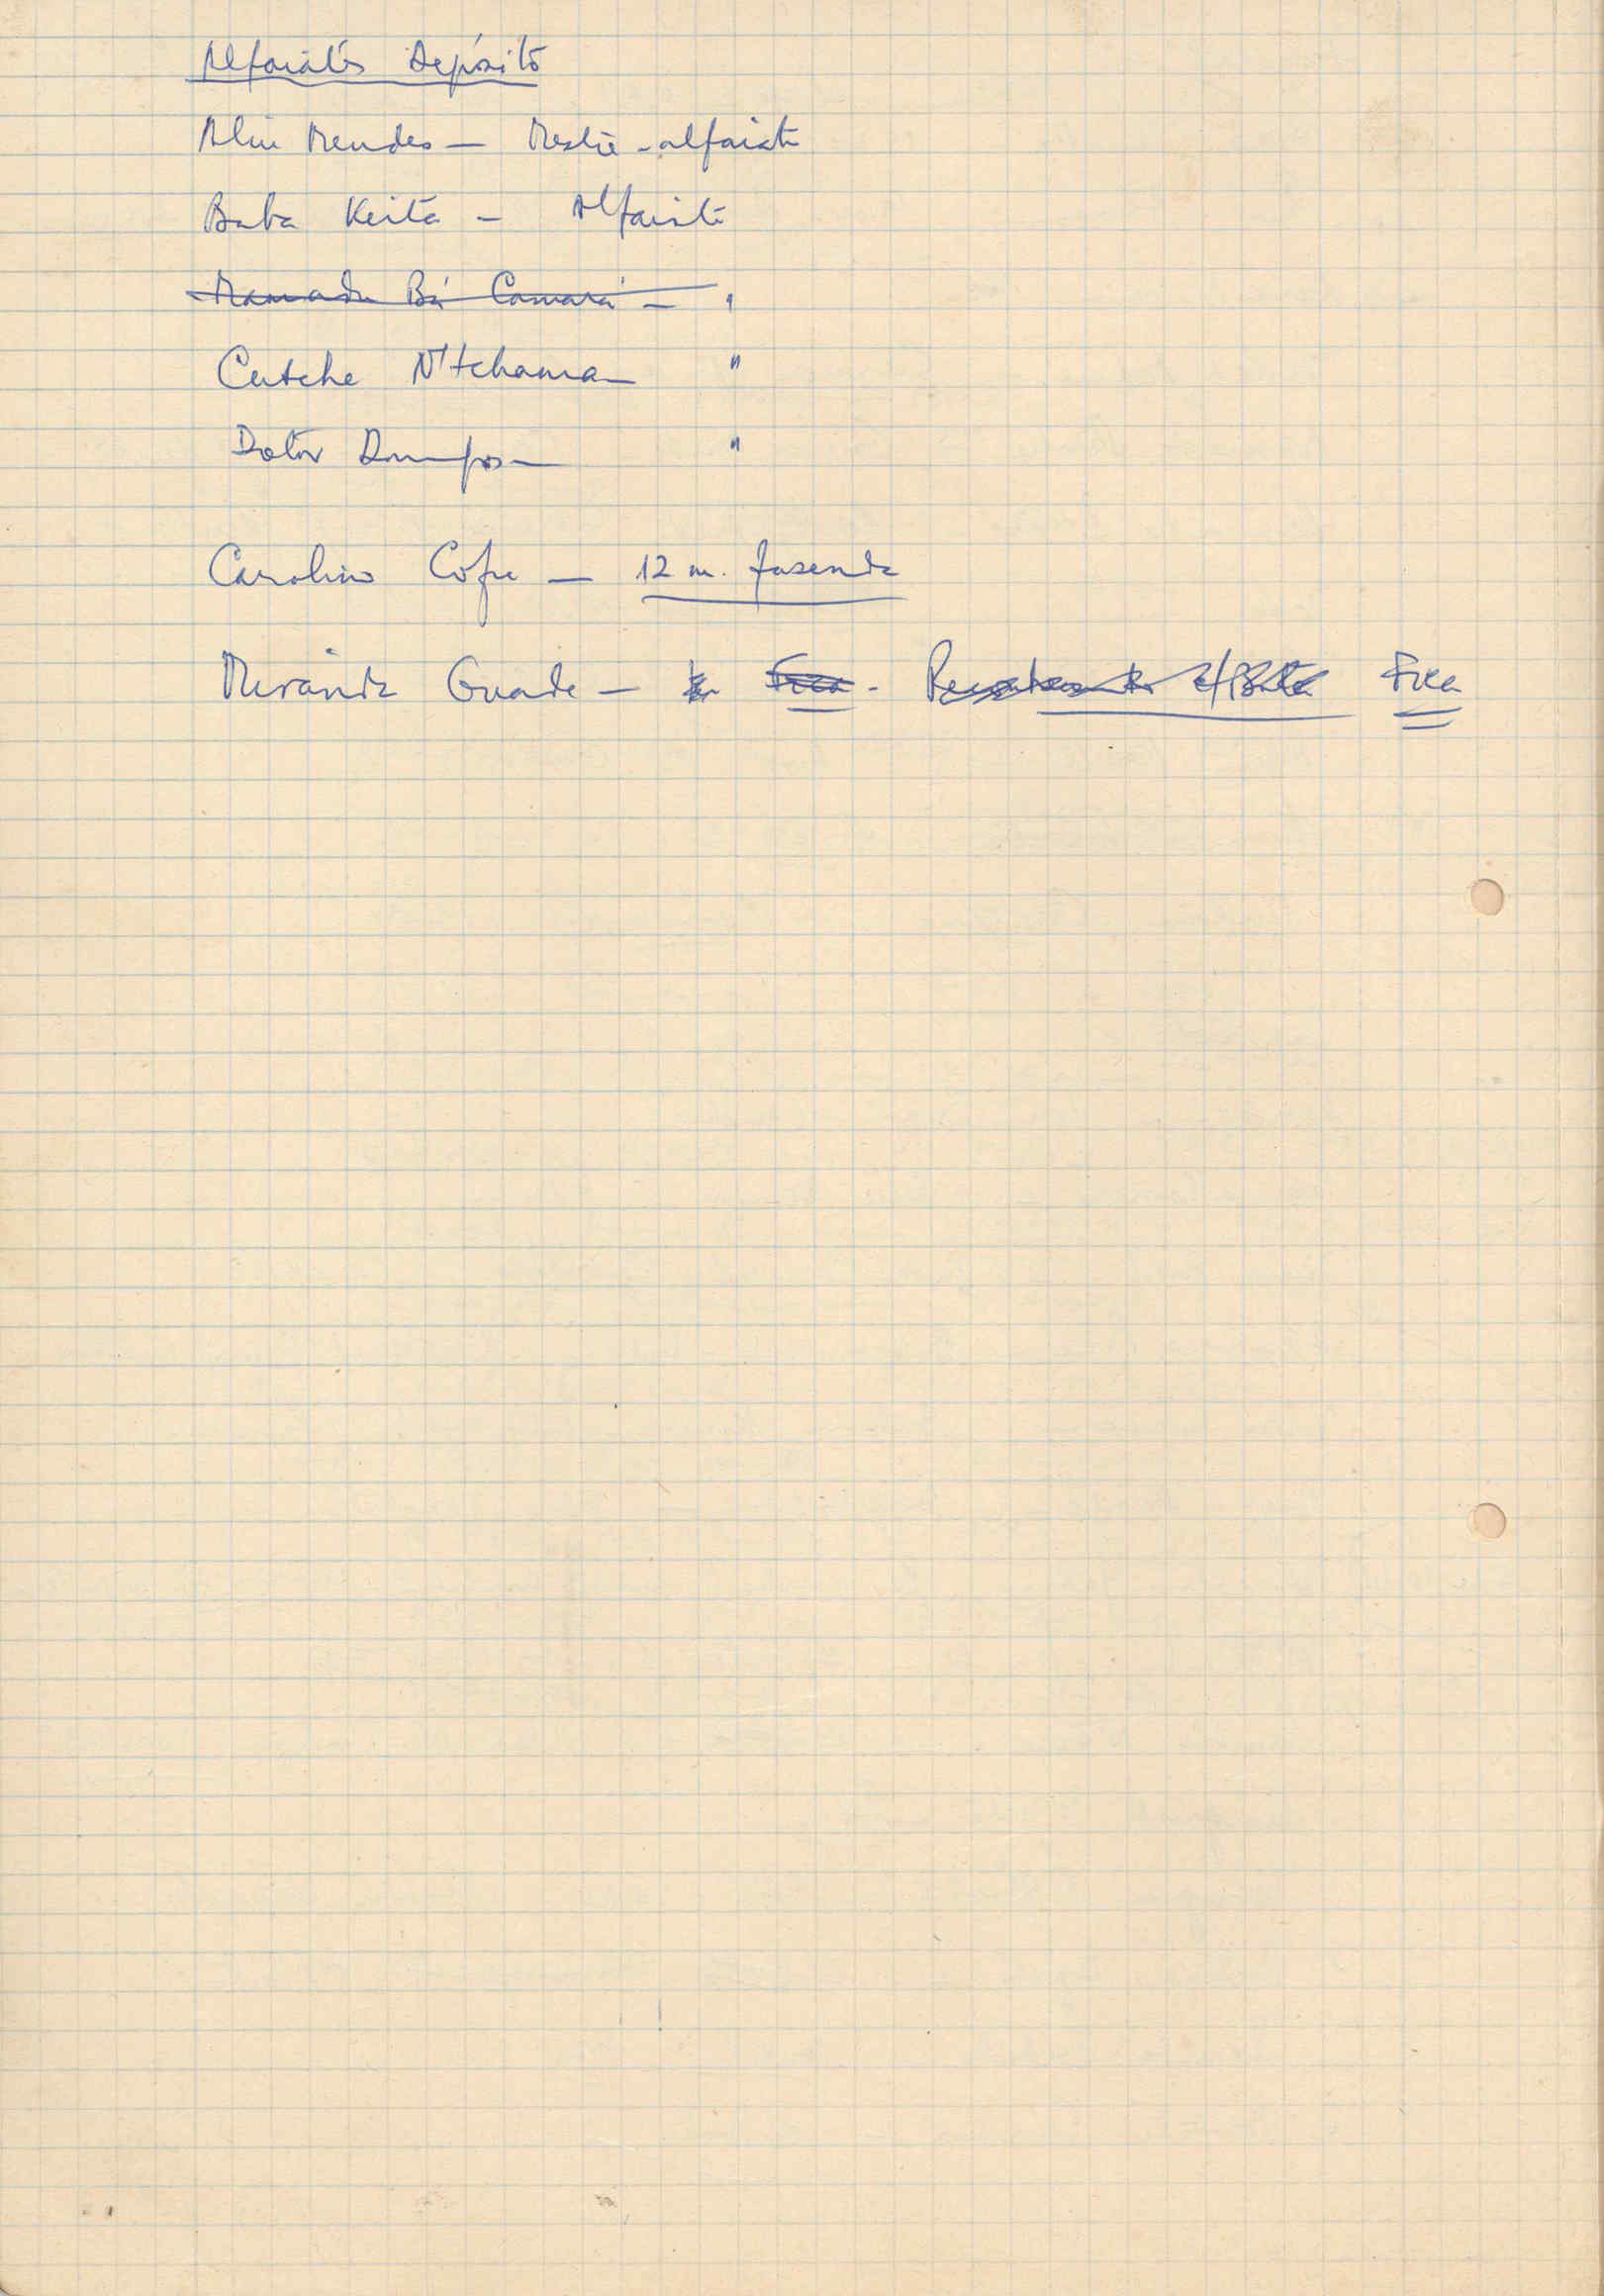 Alfaiates Depósito
Aliu Mendes — Mestre-alfaiate
Buba Keita — Alfaiate
Mamadu Bá Camará — "
Cutche N'tchama "
Dotor "
Carolino Cofre — 12 m. fazenda
Miranda Guade — Fica - Fica